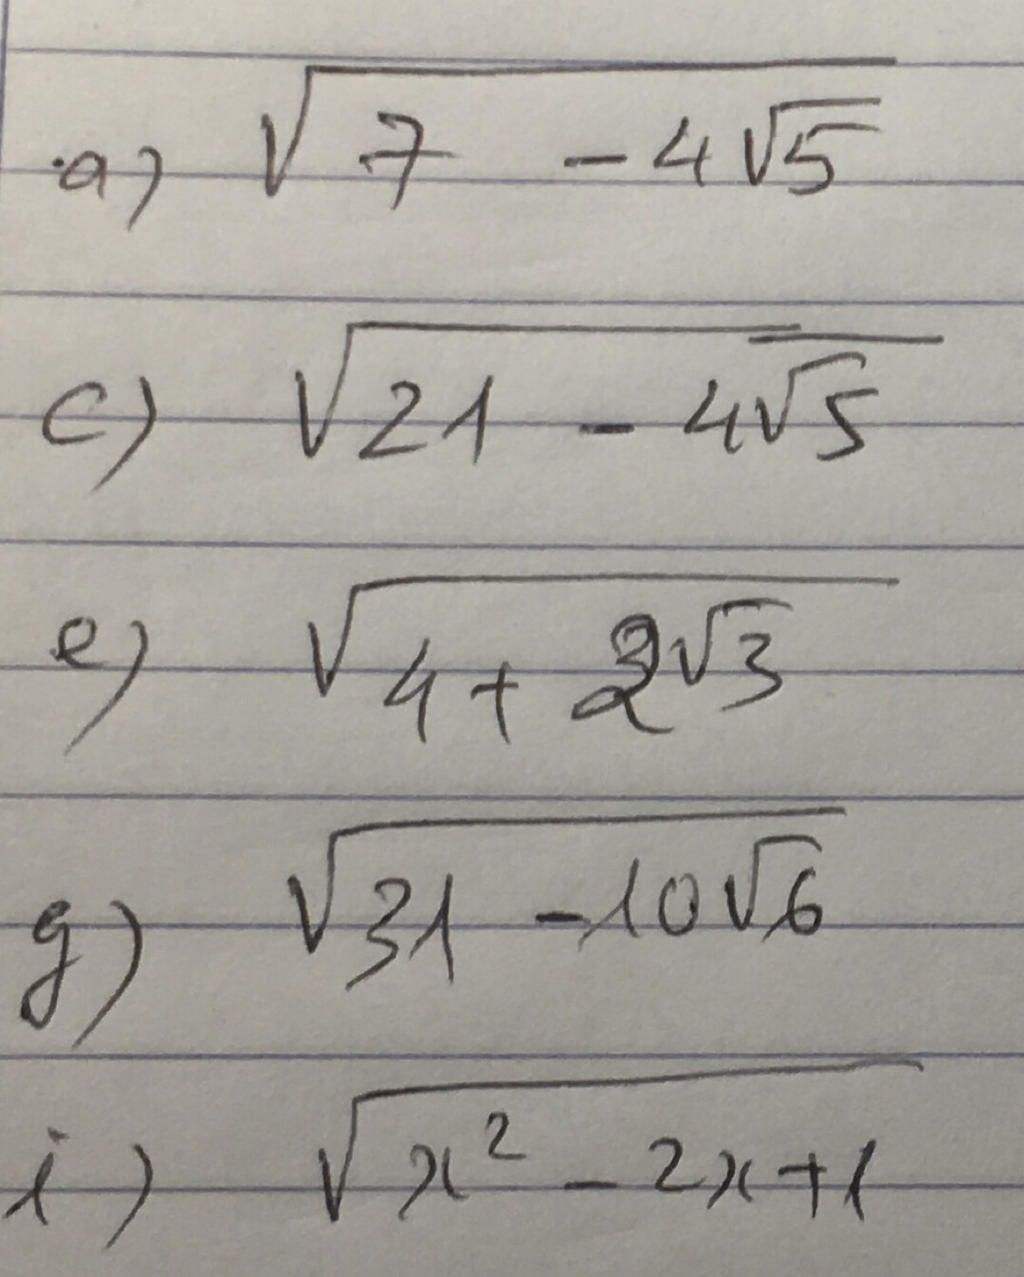 a) √(7 - 4√5)
c) √(21 - 4√5)
e) √(4 + 2√3)
g) √(31 - 10√6)
i) √(x² - 2x + 1)